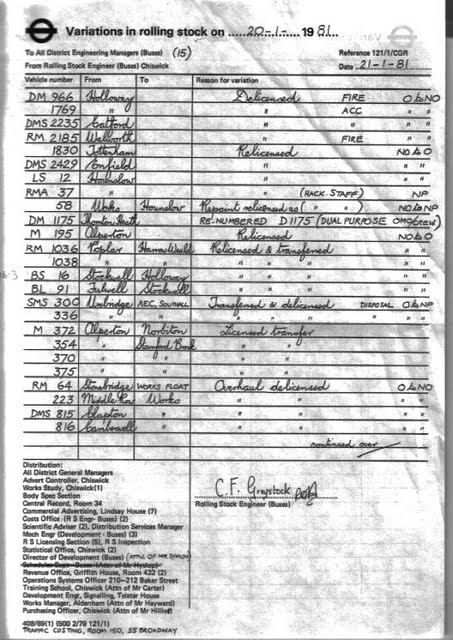 Variations in rolling stock on 20-1- 1981
To All District Engineering Managers (Buses) (15) Reference 121/1/CGR
From Rolling Stock Engineer (Buses) Chiswick Date 21-1-81
Vehicle number From To Reason for variation
DM 966 Holloway Delicensed FIRE O to NO
1769 " " ACC " "
DMS 2235 Catford " " "
RM 2185 Walworth " FIRE " "
1830 Tottenham Relicensed NO to O
DMS 2429 Enfield " " "
LS 12 Hounslow " " "
RMA 37 " " (HACK. STAFF) NP
58 Works Hounslow Repaint relicensed as ( " ) NO to NP
DM 1175 Thornton Heath RE-NUMBERED D1175 (DUAL PURPOSE
M 195 Alperton Relicensed NO to O
RM 1036 Poplar Harrow Weald Relicensed & transferred " "
1038 " " " " " "
BS 16 Stockwell Holloway " " " "
BL 91 Fulwell Stockwell " " " "
SMS 300 Uxbridge AEC, SOUTHALL Transferred & delicensed DISPOSAL O to NP
336 " " " " " " "
M 372 Alperton Norbiton Licensed transfer
354 " Stamford Brook " "
370 " " " "
375 " " " "
RM 64 Stonebridge WORKS FLOAT Overhaul delicensed O to NO
223 Middle Row Works " " " "
DMS 815 Clapton " " " " "
816 Camberwell " " " " "
continued over
Distribution:
All District General Managers
Advert Controller, Chiswick
Works Study, Chiswick (1)
Body Spec Section
Central Record, Room 34
Commercial Advertising, Lindsay House (7)
Costs Office (R S Engr- Buses) (2)
Scientific Adviser (2), Distribution Services Manager
Mech Engr (Development - Buses) (3)
R S Licensing Section (5), R S Inspection
Statistical Office, Chiswick (2)
Director of Development (Buses) (ATTN. OF MR SYMON)
Schedules Dept - Buses (Attn of Mr Hyslop)
Revenue Office, Griffith House, Room 432 (2)
Operations Systems Officer 210-212 Baker Street
Training School, Chiswick (Attn of Mr Carter)
Development Engr, Signalling, Telstar House
Works Manager, Aldenham (Attn of Mr Hayward)
Purchasing Officer, Chiswick (Attn of Mr Hillie)
C.F. Graystock
Rolling Stock Engineer (Buses)
408/69(1) (500 2/79 121/1)
TRAFFIC COSTING, ROOM 150, 55 BROADWAY